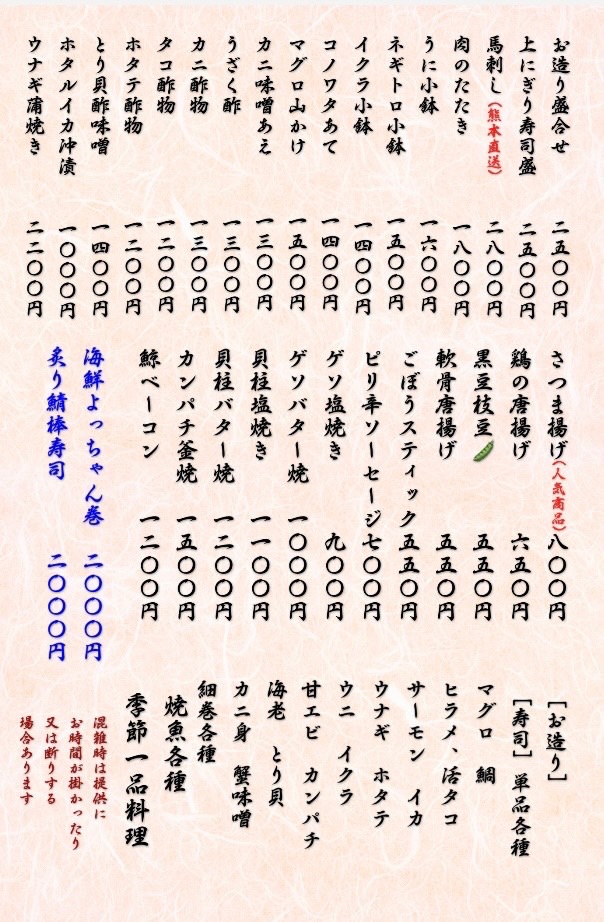 お造り盛合せ 二五〇〇円
上にぎり寿司盛 二五〇〇円
馬刺し(熊本直送) 二八〇〇円
肉のたたき 一八〇〇円
うに小鉢 一六〇〇円
ネギトロ小鉢 一五〇〇円
イクラ小鉢 一四〇〇円
コノワタあて 一四〇〇円
マグロ山かけ 一五〇〇円
カニ味噌あえ 一三〇〇円
うざく酢 一三〇〇円
カニ酢物 一三〇〇円
タコ酢物 一二〇〇円
ホタテ酢物 一二〇〇円
とり貝酢味噌 一四〇〇円
ホタルイカ沖漬 一〇〇〇円
ウナギ蒲焼き 二二〇〇円
さつま揚げ(人気商品) 八〇〇円
鶏の唐揚げ 六五〇円
黒豆枝豆 五五〇円
軟骨唐揚げ 五五〇円
ごぼうスティック 五五〇円
ピリ辛ソーセージ 七〇〇円
ゲソ塩焼き 九〇〇円
ゲソバター焼 一〇〇〇円
貝柱塩焼き 一一〇〇円
貝柱バター焼 一二〇〇円
カンパチ釜焼 一五〇〇円
鯨ベーコン 一二〇〇円
海鮮よっちゃん巻 二〇〇〇円
炙り鯖棒寿司 二〇〇〇円
[お造り]
[寿司] 単品各種
マグロ 鯛
ヒラメ、活タコ
サーモン イカ
ウナギ ホタテ
ウニ イクラ
甘エビ カンパチ
海老 とり貝
カニ身 蟹味噌
細巻各種
焼魚各種
季節一品料理
混雑時は提供に
お時間が掛かったり
又は断りする
場合あります